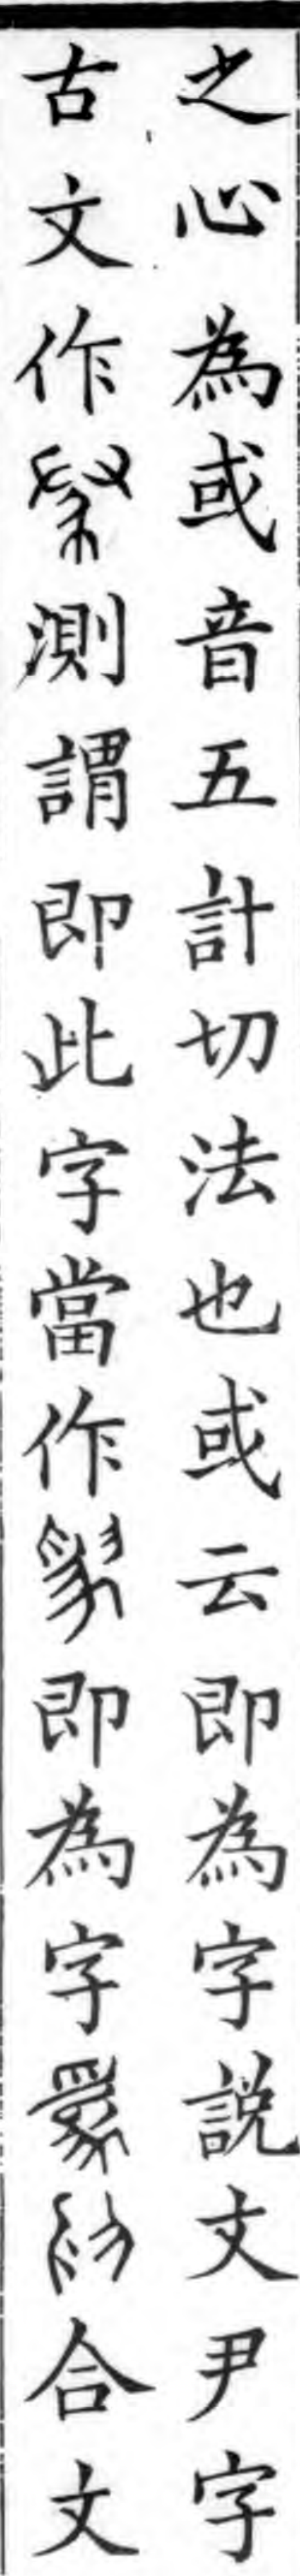 之心為或音五計切法也或云即為字説文尹字
古文作測謂即此字當作即為字合文